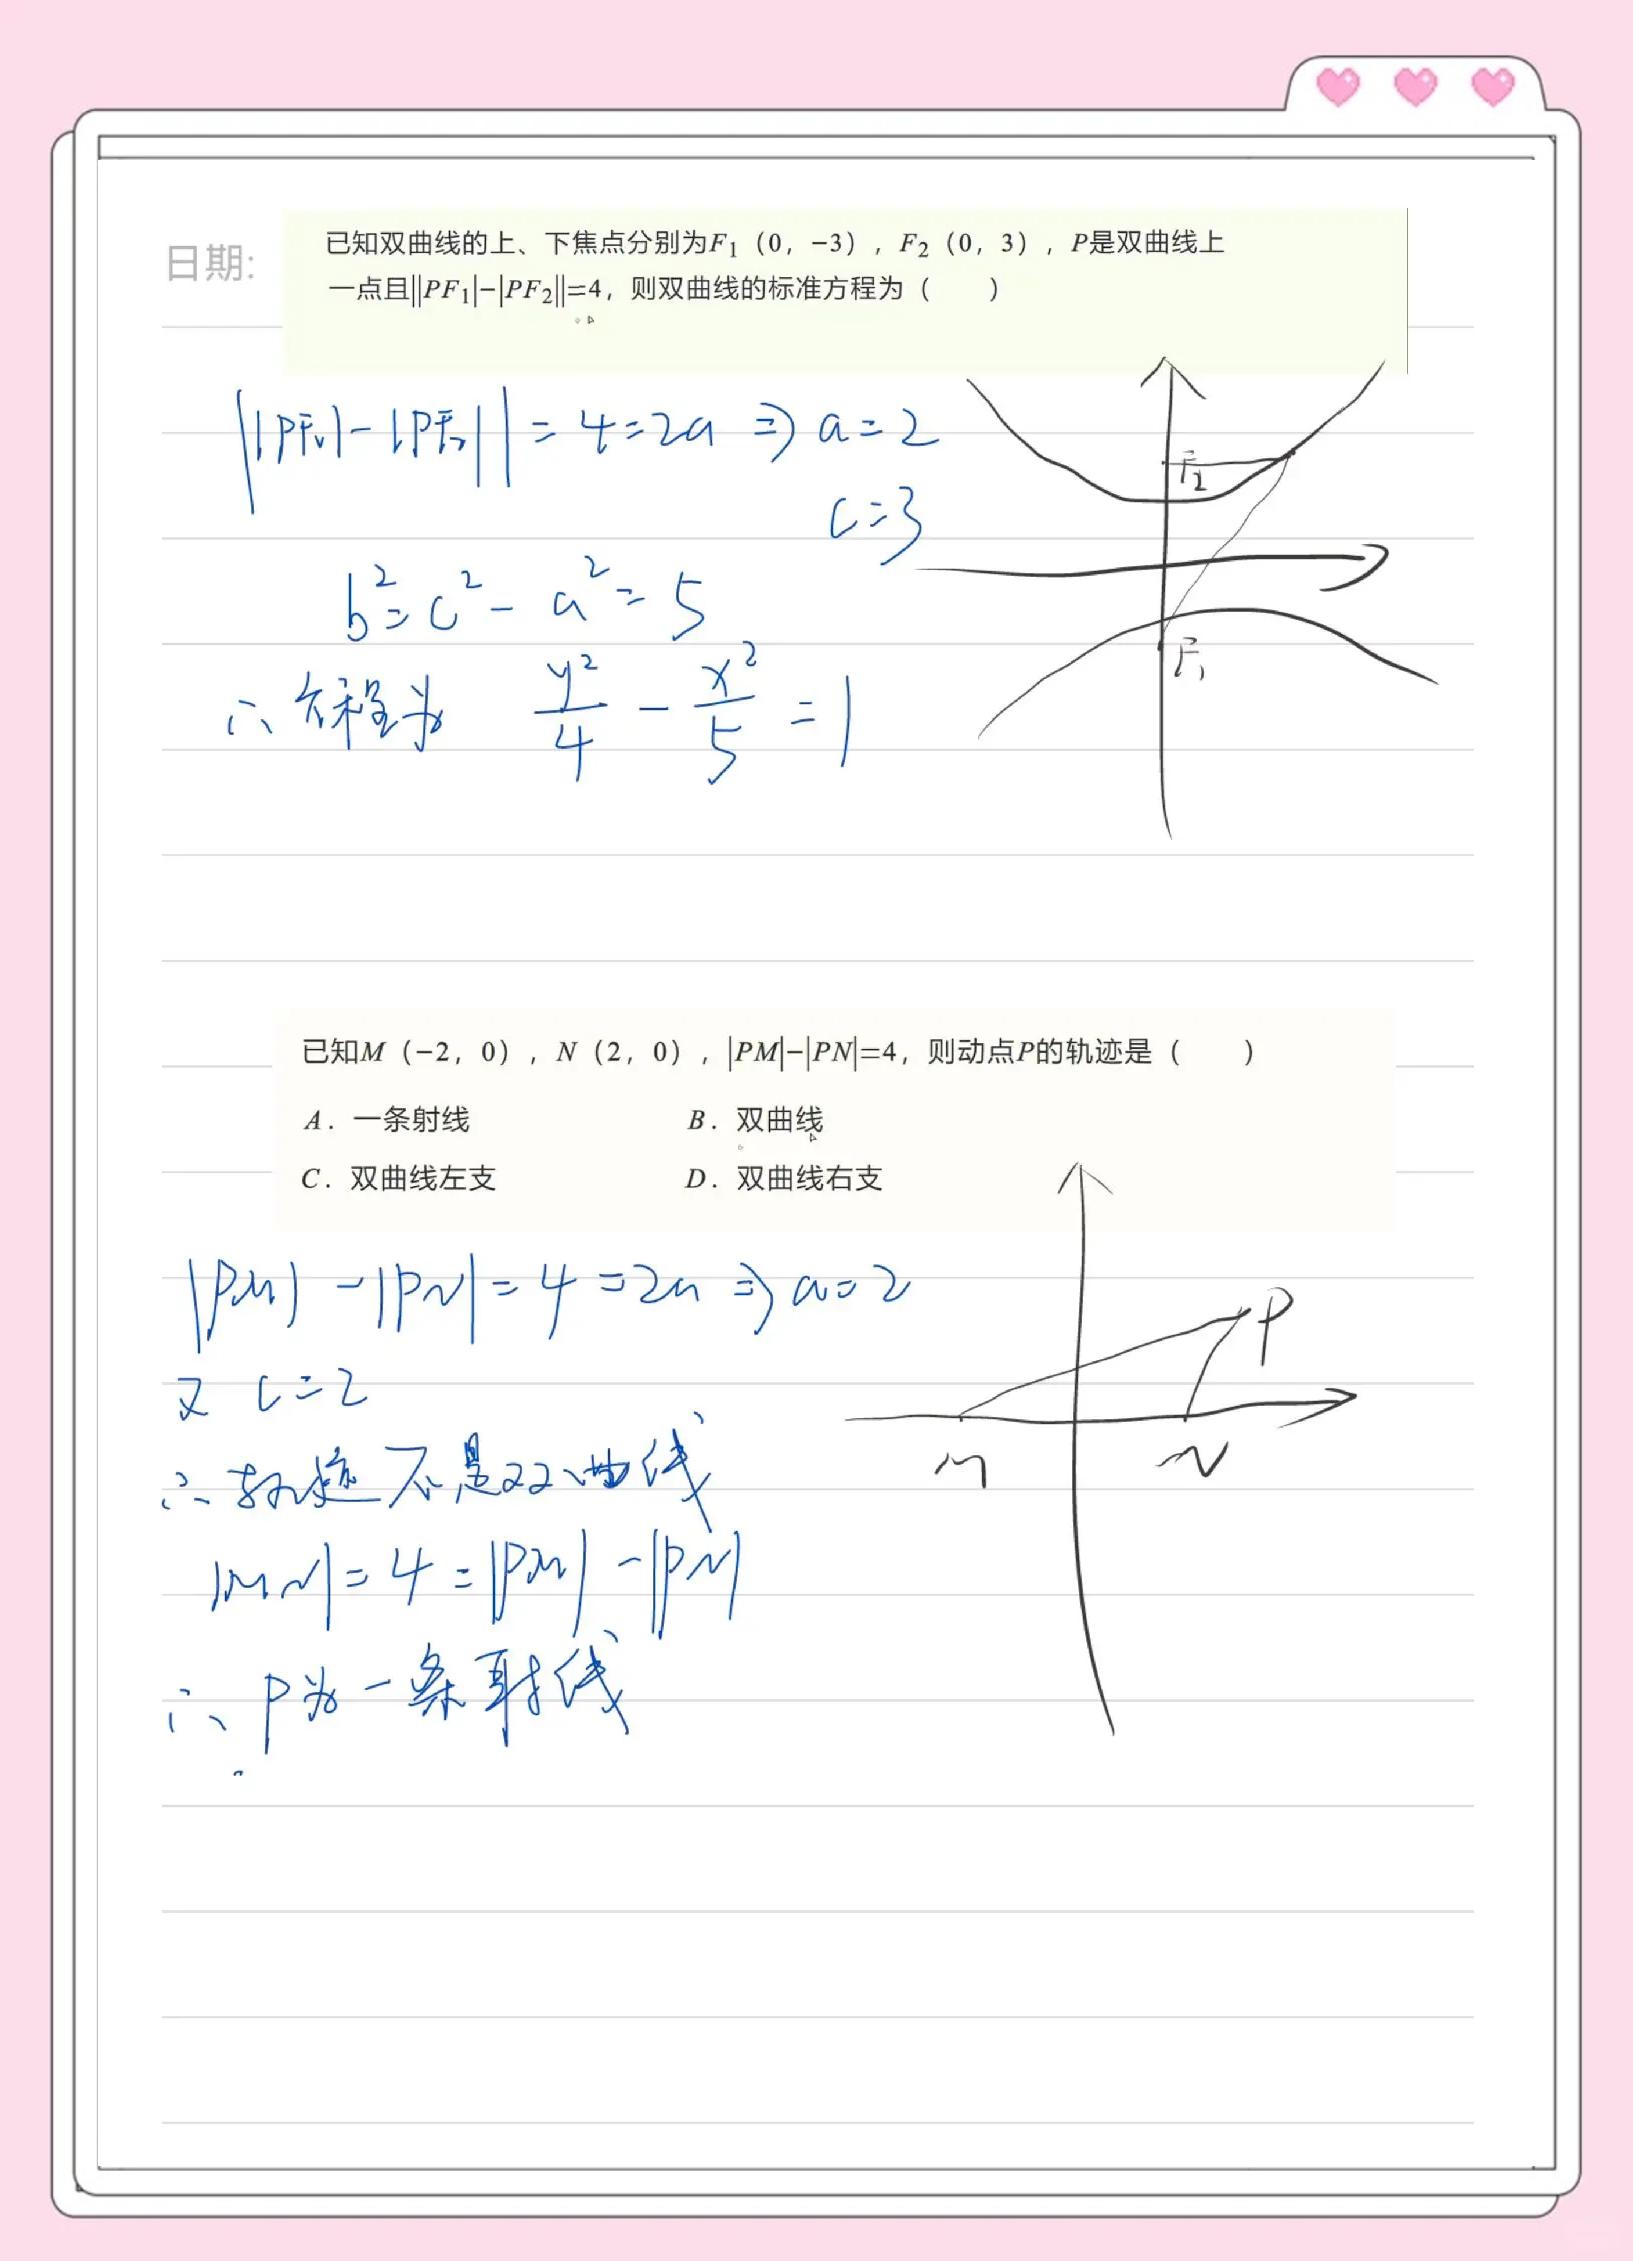 日期:
已知双曲线的上、下焦点分别为F₁（0，−3），F₂（0，3），P是双曲线上
一点且||PF₁|−|PF₂||=4，则双曲线的标准方程为（　　）
||PF₁|-|PF₂||=4=2a⇒a=2
c=3
b²=c²-a²=5
∴方程为 y²/4 - x²/5 = 1
F₂
F₁
已知M（−2，0），N（2，0），|PM|−|PN|=4，则动点P的轨迹是（　　）
A．一条射线　　B．双曲线
C．双曲线左支　　D．双曲线右支
|PM|-|PN|=4=2a⇒a=2
又 c=2
∴轨迹不是双曲线
|MN|=4=|PM|-|PN|
∴P为一条射线
P
M N